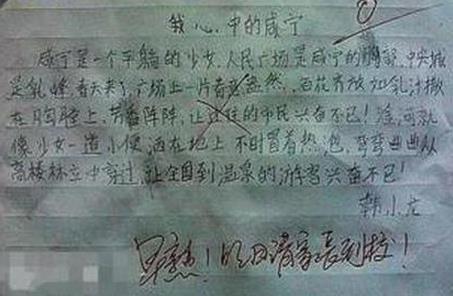 我心中的咸宁
咸宁是一个平躺的少女,人民广场是咸宁的胸部,中央城
是乳峰,春天来了,广场上一片春意盎然,百花齐放如乳汁撒
在胸膛上,芳香阵阵,让过往的市民兴奋不已!淦河就
像少女一道小便洒在地上 不时冒着热泡,弯弯曲曲从
高楼林立中穿过,让全国到温泉的游客兴奋不已!
韩小龙
早熟!明日请家长到校!